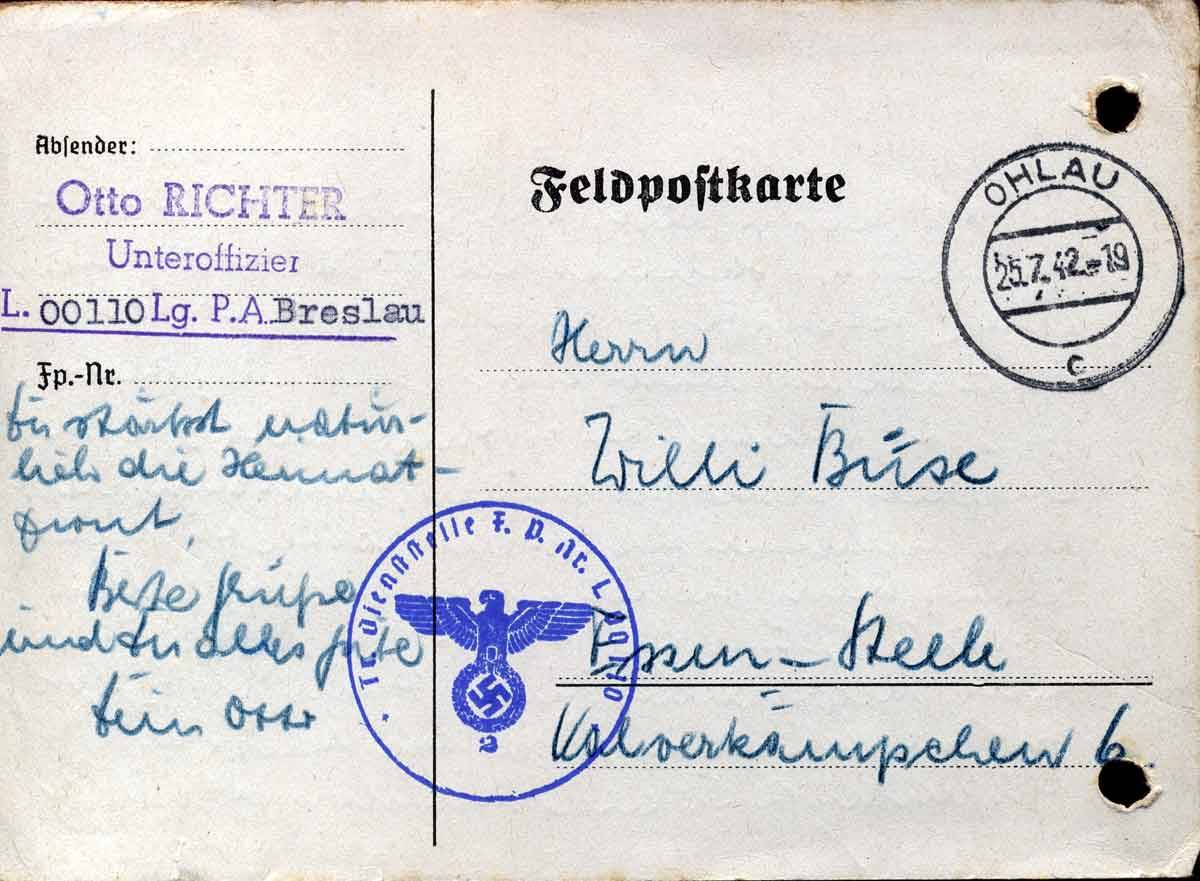 Absender:
Otto RICHTER
Unteroffizier
L. 00110 Lg. P.A. Breslau
Fp.-Nr.
Du stärkst natür-
lich die Heimat-
front,
Beste Grüße
und Dir alles Gute
Dein Otto
Feldpostkarte
OHLAU
25.7.42.-19
c
Herrn
Willi Büse
Essen-Steele
Kalverkämpchen 6.
Dienststelle F. P. Nr. L 00110
2